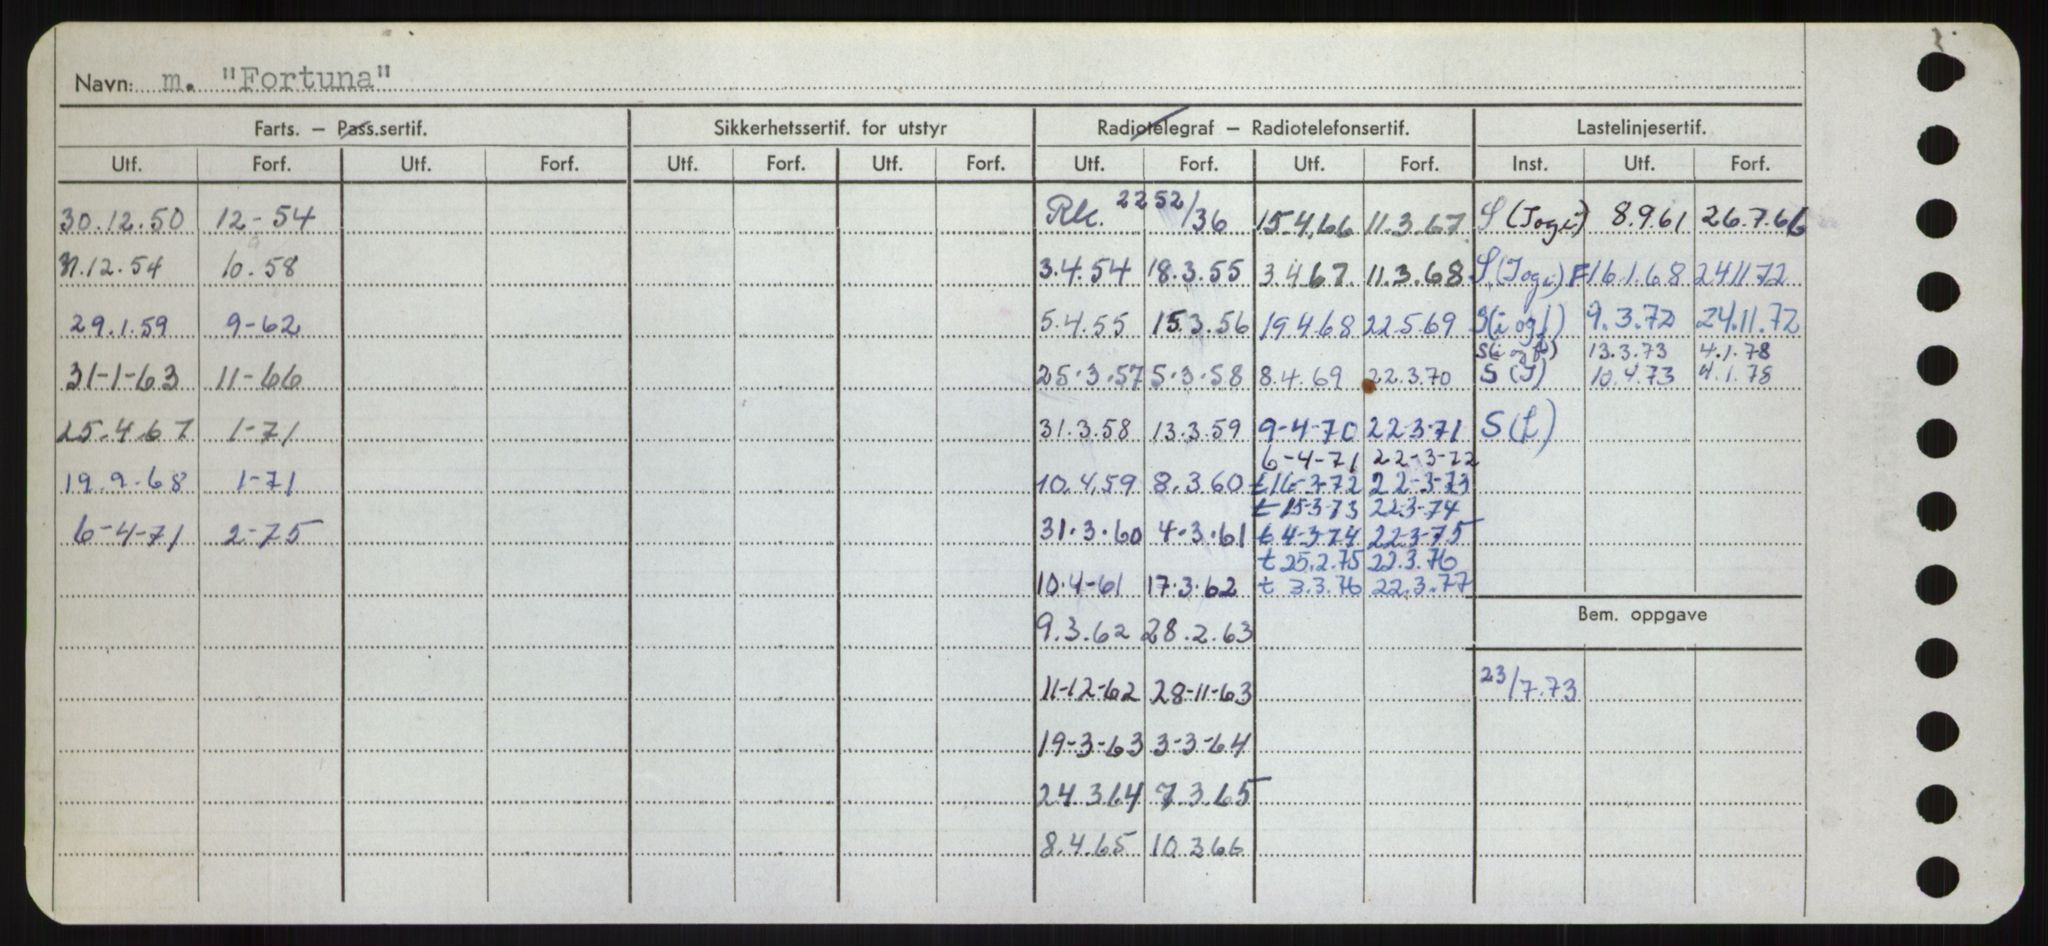 Navn: m. "Fortuna"
Farts. – Pass.sertif. Sikkerhetssertif. for utstyr Radiotelegraf – Radiotelefonsertif. Lastelinjesertif.
Utf. Forf. Utf. Forf. Utf. Forf. Utf. Forf. Utf. Forf. Utf. Forf. Inst. Utf. Forf.
30.12.50 12-54 Rk. 2252/36 15.4.66 11.3.67 S (Iogi) 8.9.61 26.7.66
.12.54 10.58 3.4.54 18.3.55 3.4.67. 11.3.68 S.(Iogi) F 16.1.68 24.11.72
29.1.59 9-62 5.4.55 15.3.56 19.4.68 22.5.69 S(i og l) 9.3.72 24.11.72
13.3.73 4.1.78
31-1-63 11-66 25.3.57 5.3.58 8.4.69 22.3.70 S (I) 10.4.73 4.1.78
25.4.67 1-71 31.3.58 13.3.59 9-4-70 22-3-71 S(L)
6-4-71 22-3-72
19.9.68 1-71 10.4.59 8.3.60 t 16-3-72 22-3-73
t 15-3-73 22.3-74
6-4-71 2-75 31.3.60 4-3.61 t 4-3-74 22-3-75
t 25.2.75 22.3.76
10.4-61 17.3.62 t 3.3.76 22.3.77
Bem. oppgave
9.3.62 28.2.63
11-12-62 28-11-63 23/7.73
19-3-63 3-3-64
24.3.64 7.3.65
8.4.65 10.3.66